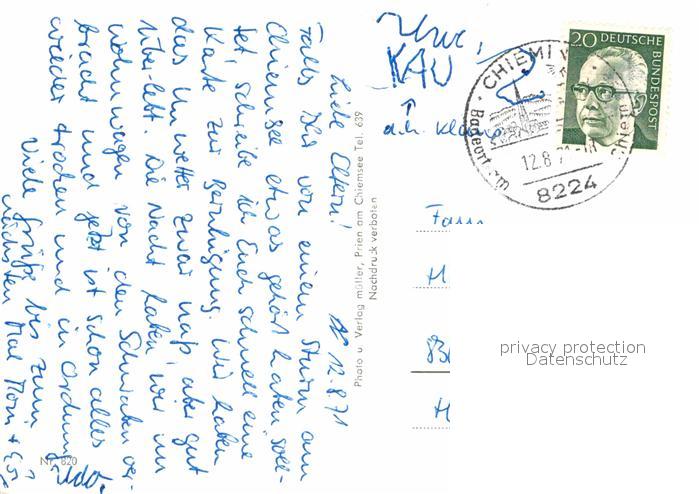 12.8.71
Liebe Eltern!
Falls Ihr von einem Sturm am
Chiemsee etwas gehört haben soll-
tet schreibe ich Euch schnell eine
Karte zur Beruhigung. Wir haben
das Unwetter zwar naß, aber gut
überlebt. Die Nacht haben wir im
Wohnwagen von den Schwaben ver-
bracht und jetzt ist schon alles
wieder trocken und in Ordnung.
Viele Grüße bis zum
nächsten Mal
Nr. 820
Photo u. Verlag müller, Prien am Chiemsee Tel. 639
Nachdruck verboten
KAU
20 DEUTSCHE
BUNDESPOST
CHIEMI
Badeort am
12.8.7
8224
Fam
H
83
H
privacy protection
Datenschutz